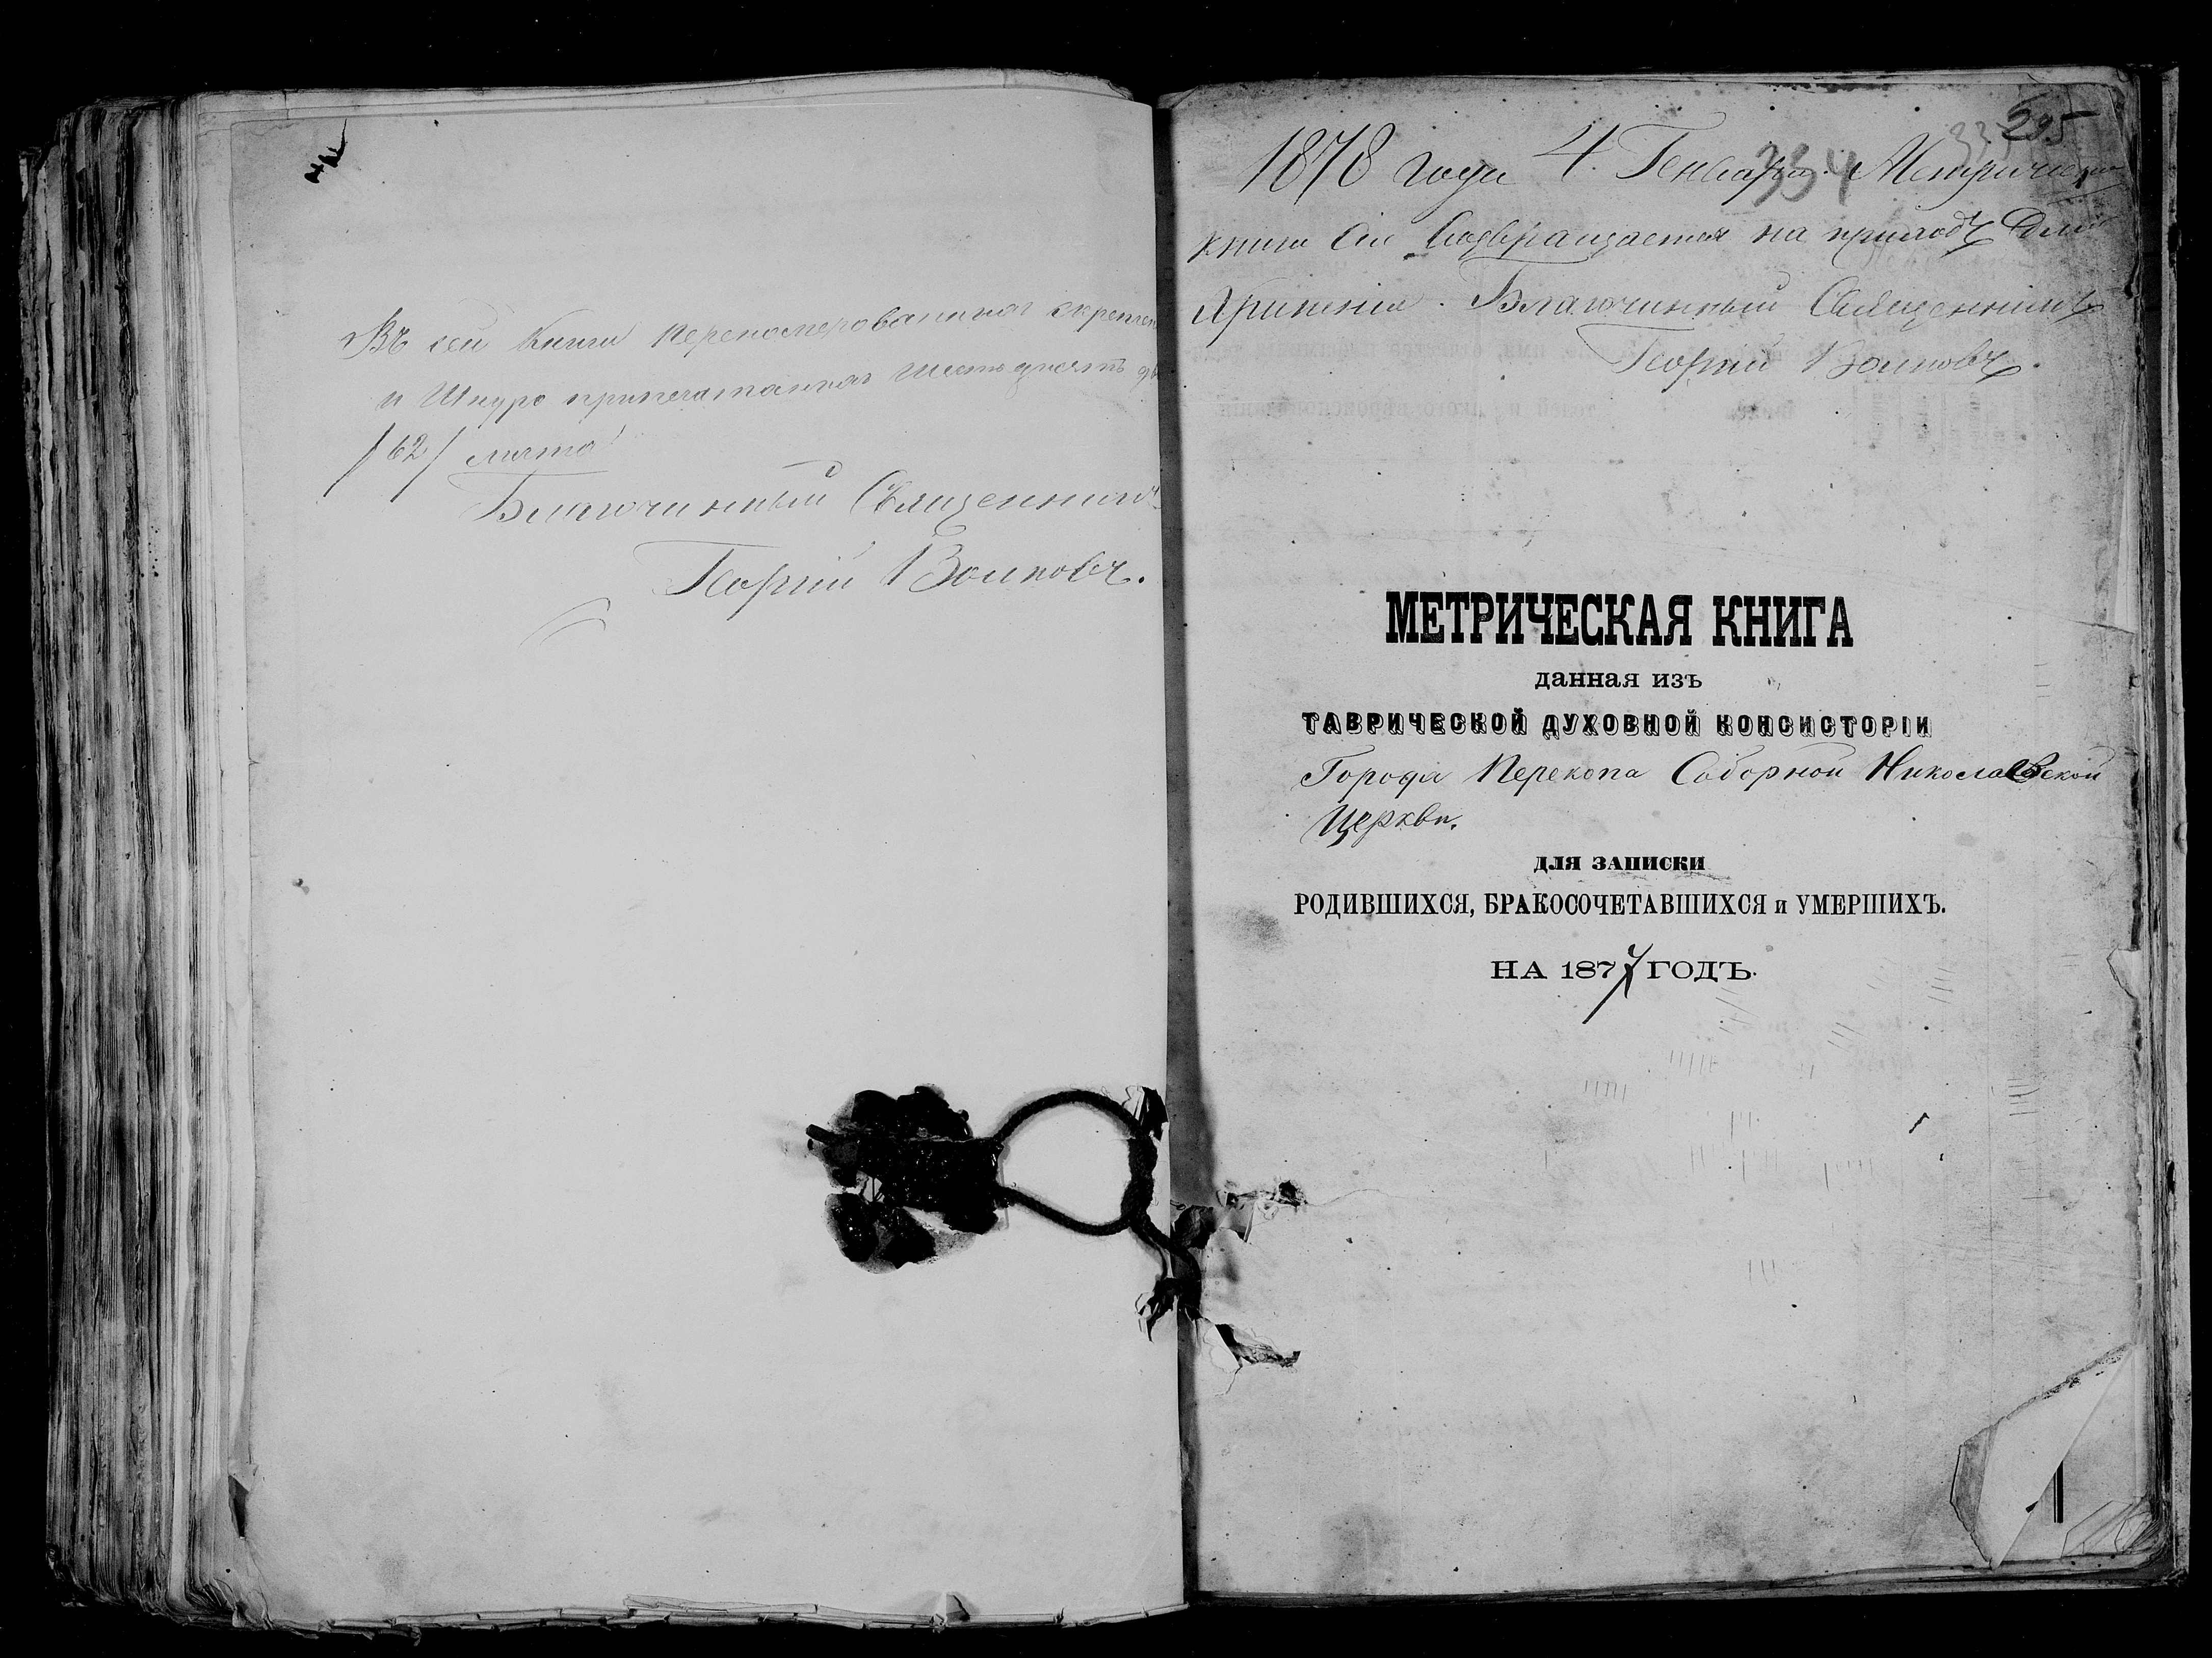 Въ сей Книги перенумерованных скреплен
и Шнуро припечатанных Шестьдесятъ дв
/62/ листа
Благочинный Священникъ
Георгій Воиновъ.
505
334
1878 года 4. Генваря. Метрическая
книга Сія возвращается на приходъ для
Хранения. Благочинный Священникъ
Георгій Воиновъ.
МЕТРИЧЕСКАЯ КНИГА
данная изъ
ТАВРИЧЕСКОЙ ДУХОВНОЙ КОНСИСТОРІИ
Города Перекопа Соборной Николаевской
Церкви.
ДЛЯ ЗАПИСКИ
РОДИВШИХСЯ, БРАКОСОЧЕТАВШИХСЯ и УМЕРШИХЪ.
НА 1877 ГОДЪ.